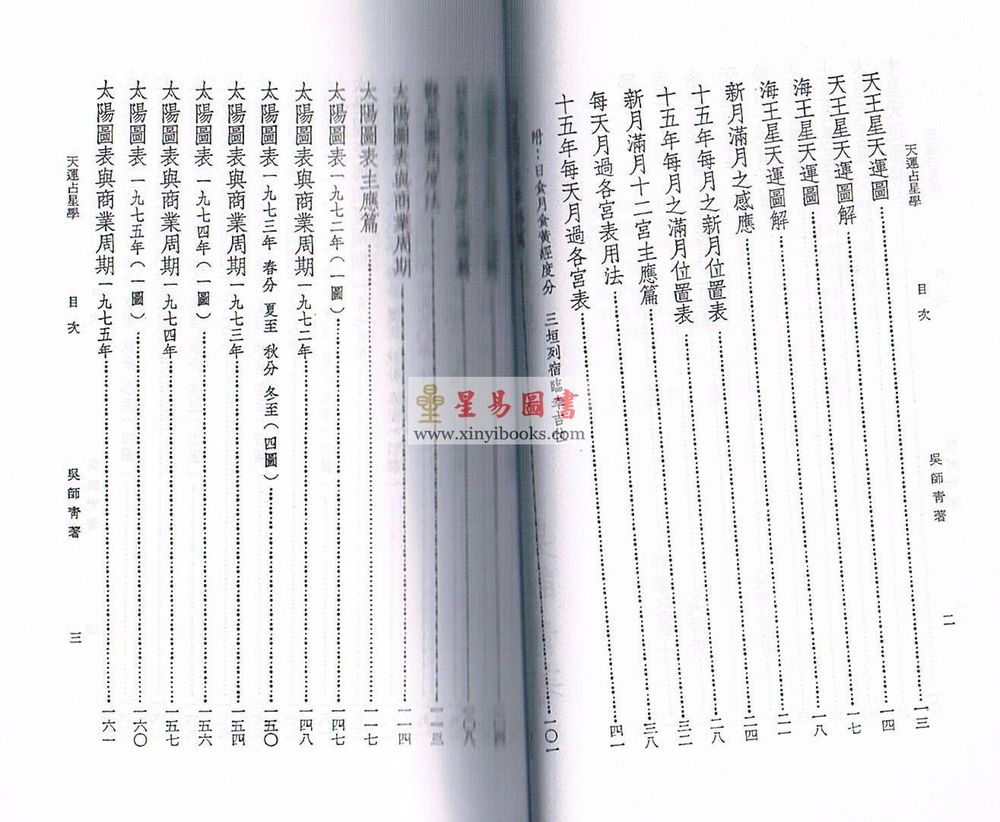 天運占星學 目次 吳師青著 二
天王星天運圖……一三
天王星天運圖解……一四
海王星天運圖……一七
海王星天運圖解……一八
新月滿月之感應……二一
十五年每月之新月位置表……二四
十五年每月之滿月位置表……二八
新月滿月十二宮主應篇……三二
每天月過各宮表用法……三八
十五年每天月過各宮表……四一
附：日食月食黃經度分 三垣列宿臨 吉……一〇一
太陽圖表與商業周期……一一四
太陽圖表主應篇……一一七
太陽圖表一九七二年(一圖)……一四七
太陽圖表與商業周期一九七二年……一四八
太陽圖表一九七三年 春分 夏至 秋分 冬至(四圖)……一五〇
太陽圖表與商業周期一九七三年……一五四
太陽圖表一九七四年(一圖)……一五六
太陽圖表與商業周期一九七四年……一五七
太陽圖表一九七五年(一圖)……一六〇
太陽圖表與商業周期一九七五年……一六一
天運占星學 目次 吳師青著 三
星易圖書
www.xinyibooks.com